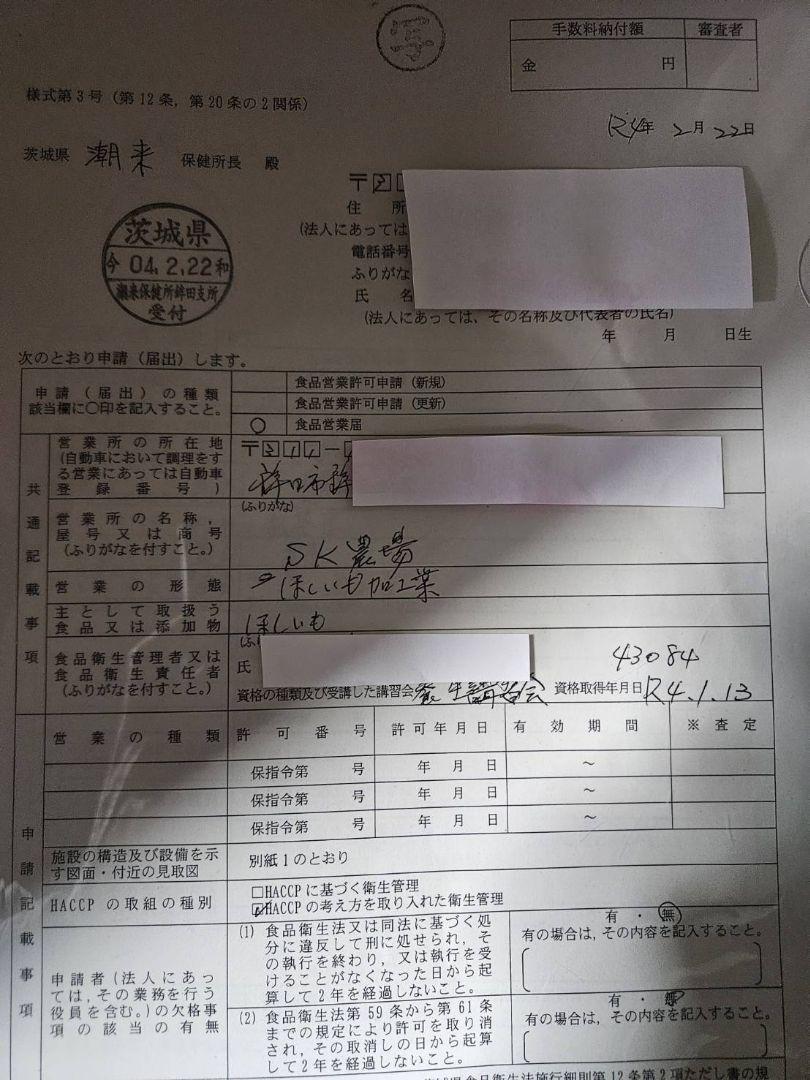 手数料納付額 審査者
金 円
様式第3号(第12条,第20条の2関係)
R4年 2月 22日
茨城県 潮来 保健所長 殿
茨城県
令 04.2.22 和
潮来保健所鉾田支所
受付
〒3
住 所
(法人にあっては
電話番号
ふりがな
氏 名
(法人にあっては,その名称及び代表者の氏名)
年 月 日生
次のとおり申請(届出)します。
申請(届出)の種類
該当欄に○印を記入すること。
食品営業許可申請(新規)
食品営業許可申請(更新)
○ 食品営業届
共通記載事項
営業所の所在地
(自動車において調理をす
る営業にあっては自動車
登録番号)
〒311-
鉾田市鉾
営業所の名称,
屋号又は商号
(ふりがなを付すこと。)
(ふりがな)
SK農場
営業の形態
ほしいも加工業
主として取扱う
食品又は添加物
ほしいも
食品衛生管理者又は
食品衛生責任者
(ふりがなを付すこと。)
(ふり
氏
43084
資格の種類及び受講した講習会 養生講習会 資格取得年月日 R4.1.13
申請記載事項
営業の種類 許可番号 許可年月日 有効期間 ※査定
保指令第 号 年 月 日 ~
保指令第 号 年 月 日 ~
保指令第 号 年 月 日 ~
施設の構造及び設備を示
す図面・付近の見取図
別紙1のとおり
HACCPの取組の種別
□HACCPに基づく衛生管理
☑HACCPの考え方を取り入れた衛生管理
申請者(法人にあっ
ては,その業務を行う
役員を含む。)の欠格事
項の該当の有無
(1) 食品衛生法又は同法に基づく処
分に違反して刑に処せられ,そ
の執行を終わり,又は執行を受
けることがなくなった日から起
算して2年を経過しないこと。
有・無
有の場合は,その内容を記入すること。
(2) 食品衛生法第59条から第61条
までの規定により許可を取り消
され,その取消しの日から起算
して2年を経過しないこと。
有・無
有の場合は,その内容を記入すること。
茨城県食品衛生法施行細則第12条第2項ただし書の規